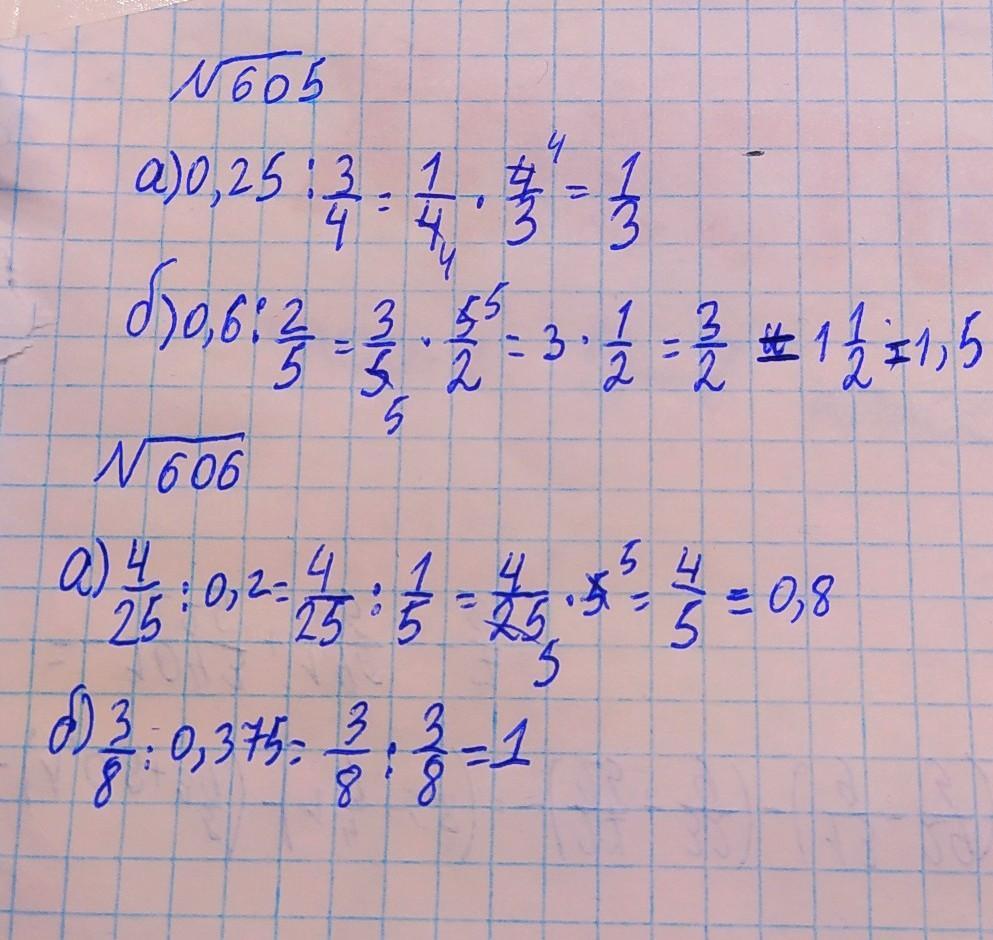 №605
а) 0,25 : 3/4 = 1/4 4 · 4/3 4 = 1/3
б) 0,6 : 2/5 = 3/5 5 · 5/2 5 = 3 · 1/2 = 3/2 = 1 1/2 = 1,5
№606
а) 4/25 : 0,2 = 4/25 : 1/5 = 4/25 5 · 5 5 = 4/5 = 0,8
б) 3/8 : 0,375 = 3/8 : 3/8 = 1